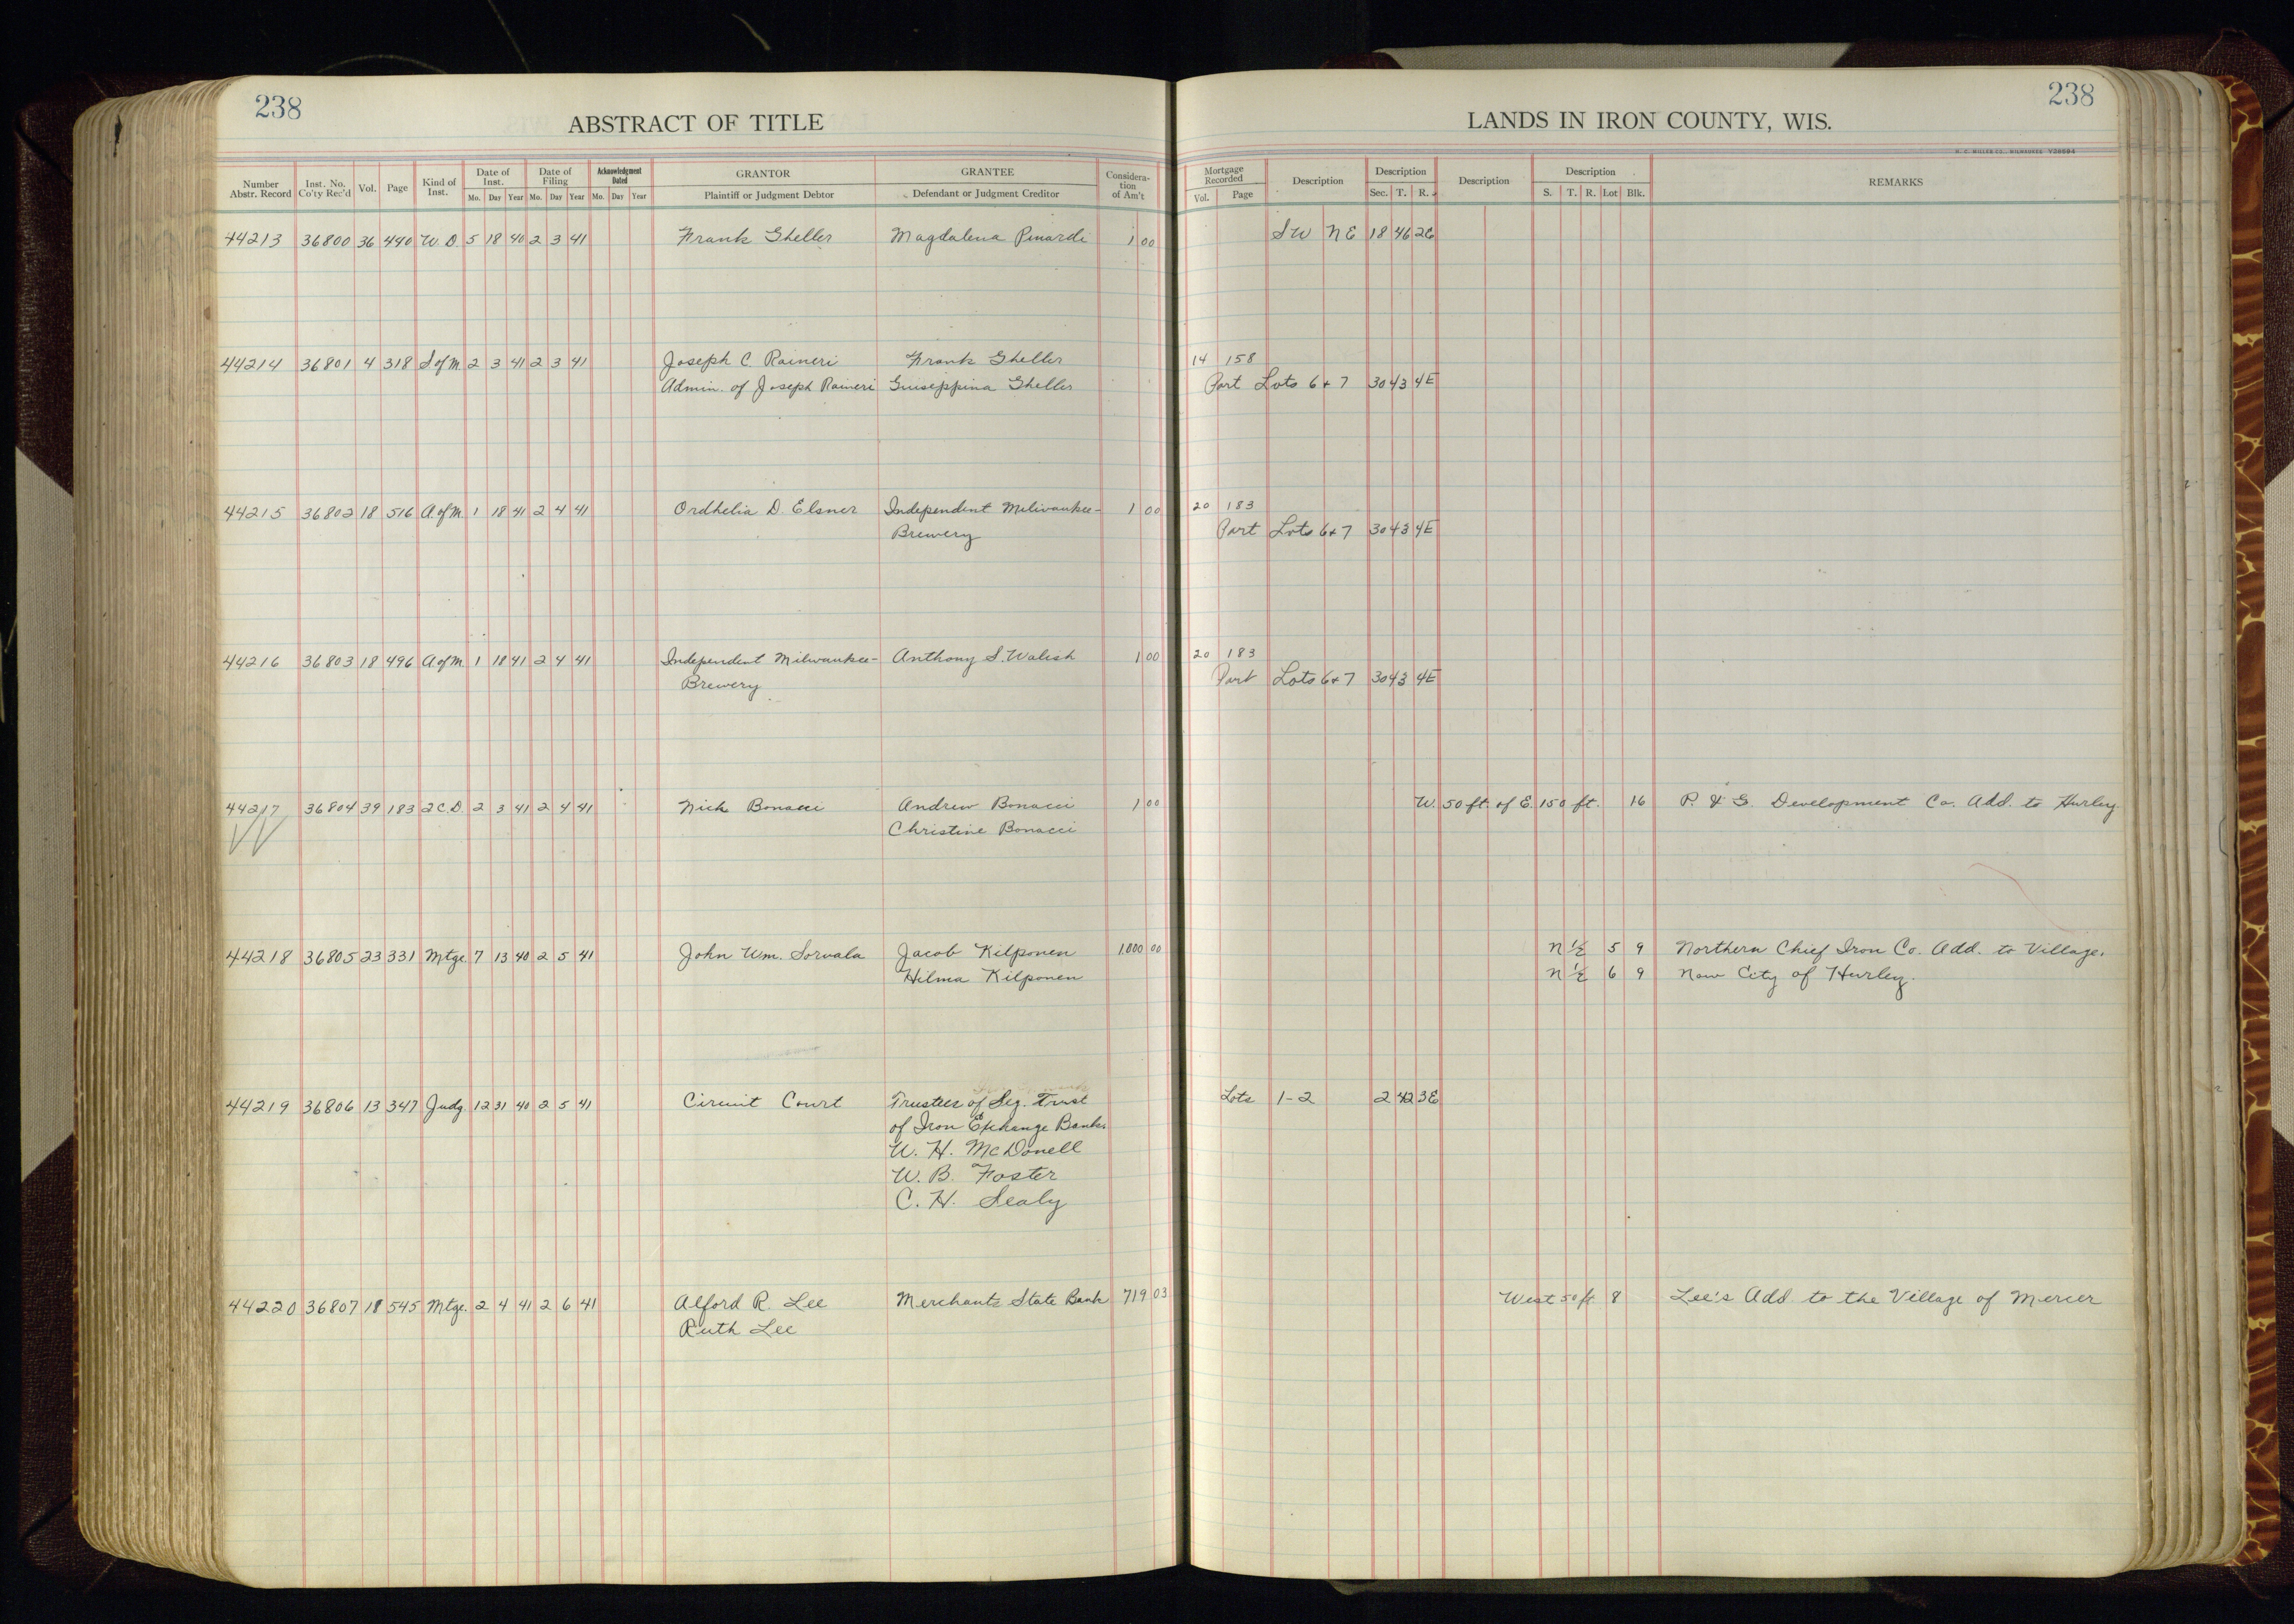 238
ABSTRACT OF TITLE
LANDS IN IRON COUNTY, WIS.
238
H. C. MILLER CO., MILWAUKEE
Number Abstr. Record Inst. No. Co'ty Rec'd Vol. Page Kind of Inst. Date of Inst. Mo. Day Year Date of Filing Mo. Day Year Acknowledgment Dated Mo. Day Year GRANTOR Plaintiff or Judgment Debtor GRANTEE Defendant or Judgment Creditor Consideration of Am't Mortgage Recorded Vol. Page Description Description Sec. T. R. Description Description S. T. R. Lot Blk. REMARKS
44213 36800 36 440 W. D. 5 18 40 2 3 41 Frank Gheller Magdalena Pinardi 1 00 SW NE 18 46 2E
44214 36801 4 318 S of M 2 3 41 2 3 41 Joseph C. Raineri Frank Gheller 14 158
Admin. of Joseph Raineri Guiseppina Gheller Part Lots 6 + 7 30 43 4E
44215 36802 18 516 A. of M. 1 18 41 2 4 41 Ordhelia D Elsner Independent Milwaukee- 1 00 20 183
Brewery Part Lots 6 + 7 30 43 4E
44216 36803 18 496 A of M 1 18 41 2 4 41 Independent Milwaukee- Anthony S. Walesh 1 00 20 183
Brewery Part Lots 6 + 7 30 43 4E
44217 36804 39 183 2 C. D 2 3 41 2 4 41 Nick Bonacci Andrew Bonacci 1 00 W. 50 ft. of E. 150 ft. 16 P. & G. Development Co. Add. to Hurley
Christine Bonacci
44218 36805 23 331 Mtge. 7 13 40 2 5 41 John Wm. Sorvala Jacob Kilponen 1000 00 N ½ 5 9 Northern Chief Iron Co. Add. to Village.
Hilma Kilponen N ½ 6 9 Now City of Hurley.
44219 36806 13 347 Judg. 12 31 40 2 5 41 Circuit Court Trustees of Seg. Trust Lots 1-2 2 42 3E
of Iron Exchange Bank
W. H. McDonell
W. B. Foster
C. H. Sealy
44220 36807 18 545 Mtge. 2 4 41 2 6 41 Alford R. Lee Merchants State Bank 719 03 West 50 ft 8 Lee's Add to the Village of Mercer
Ruth Lee